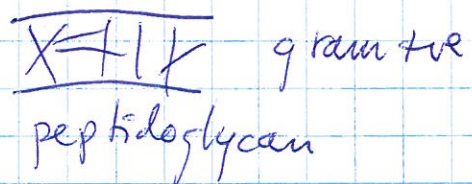 gram +ve
peptidoglycan